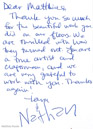 Dear Matthew,
Thank you so much
for the beautiful work you
did on our floors. We
are thrilled with how
they turned out. You are
a true artist and
craftsman, and we
are very grateful
to work with you. Thanks
again!
Nathan